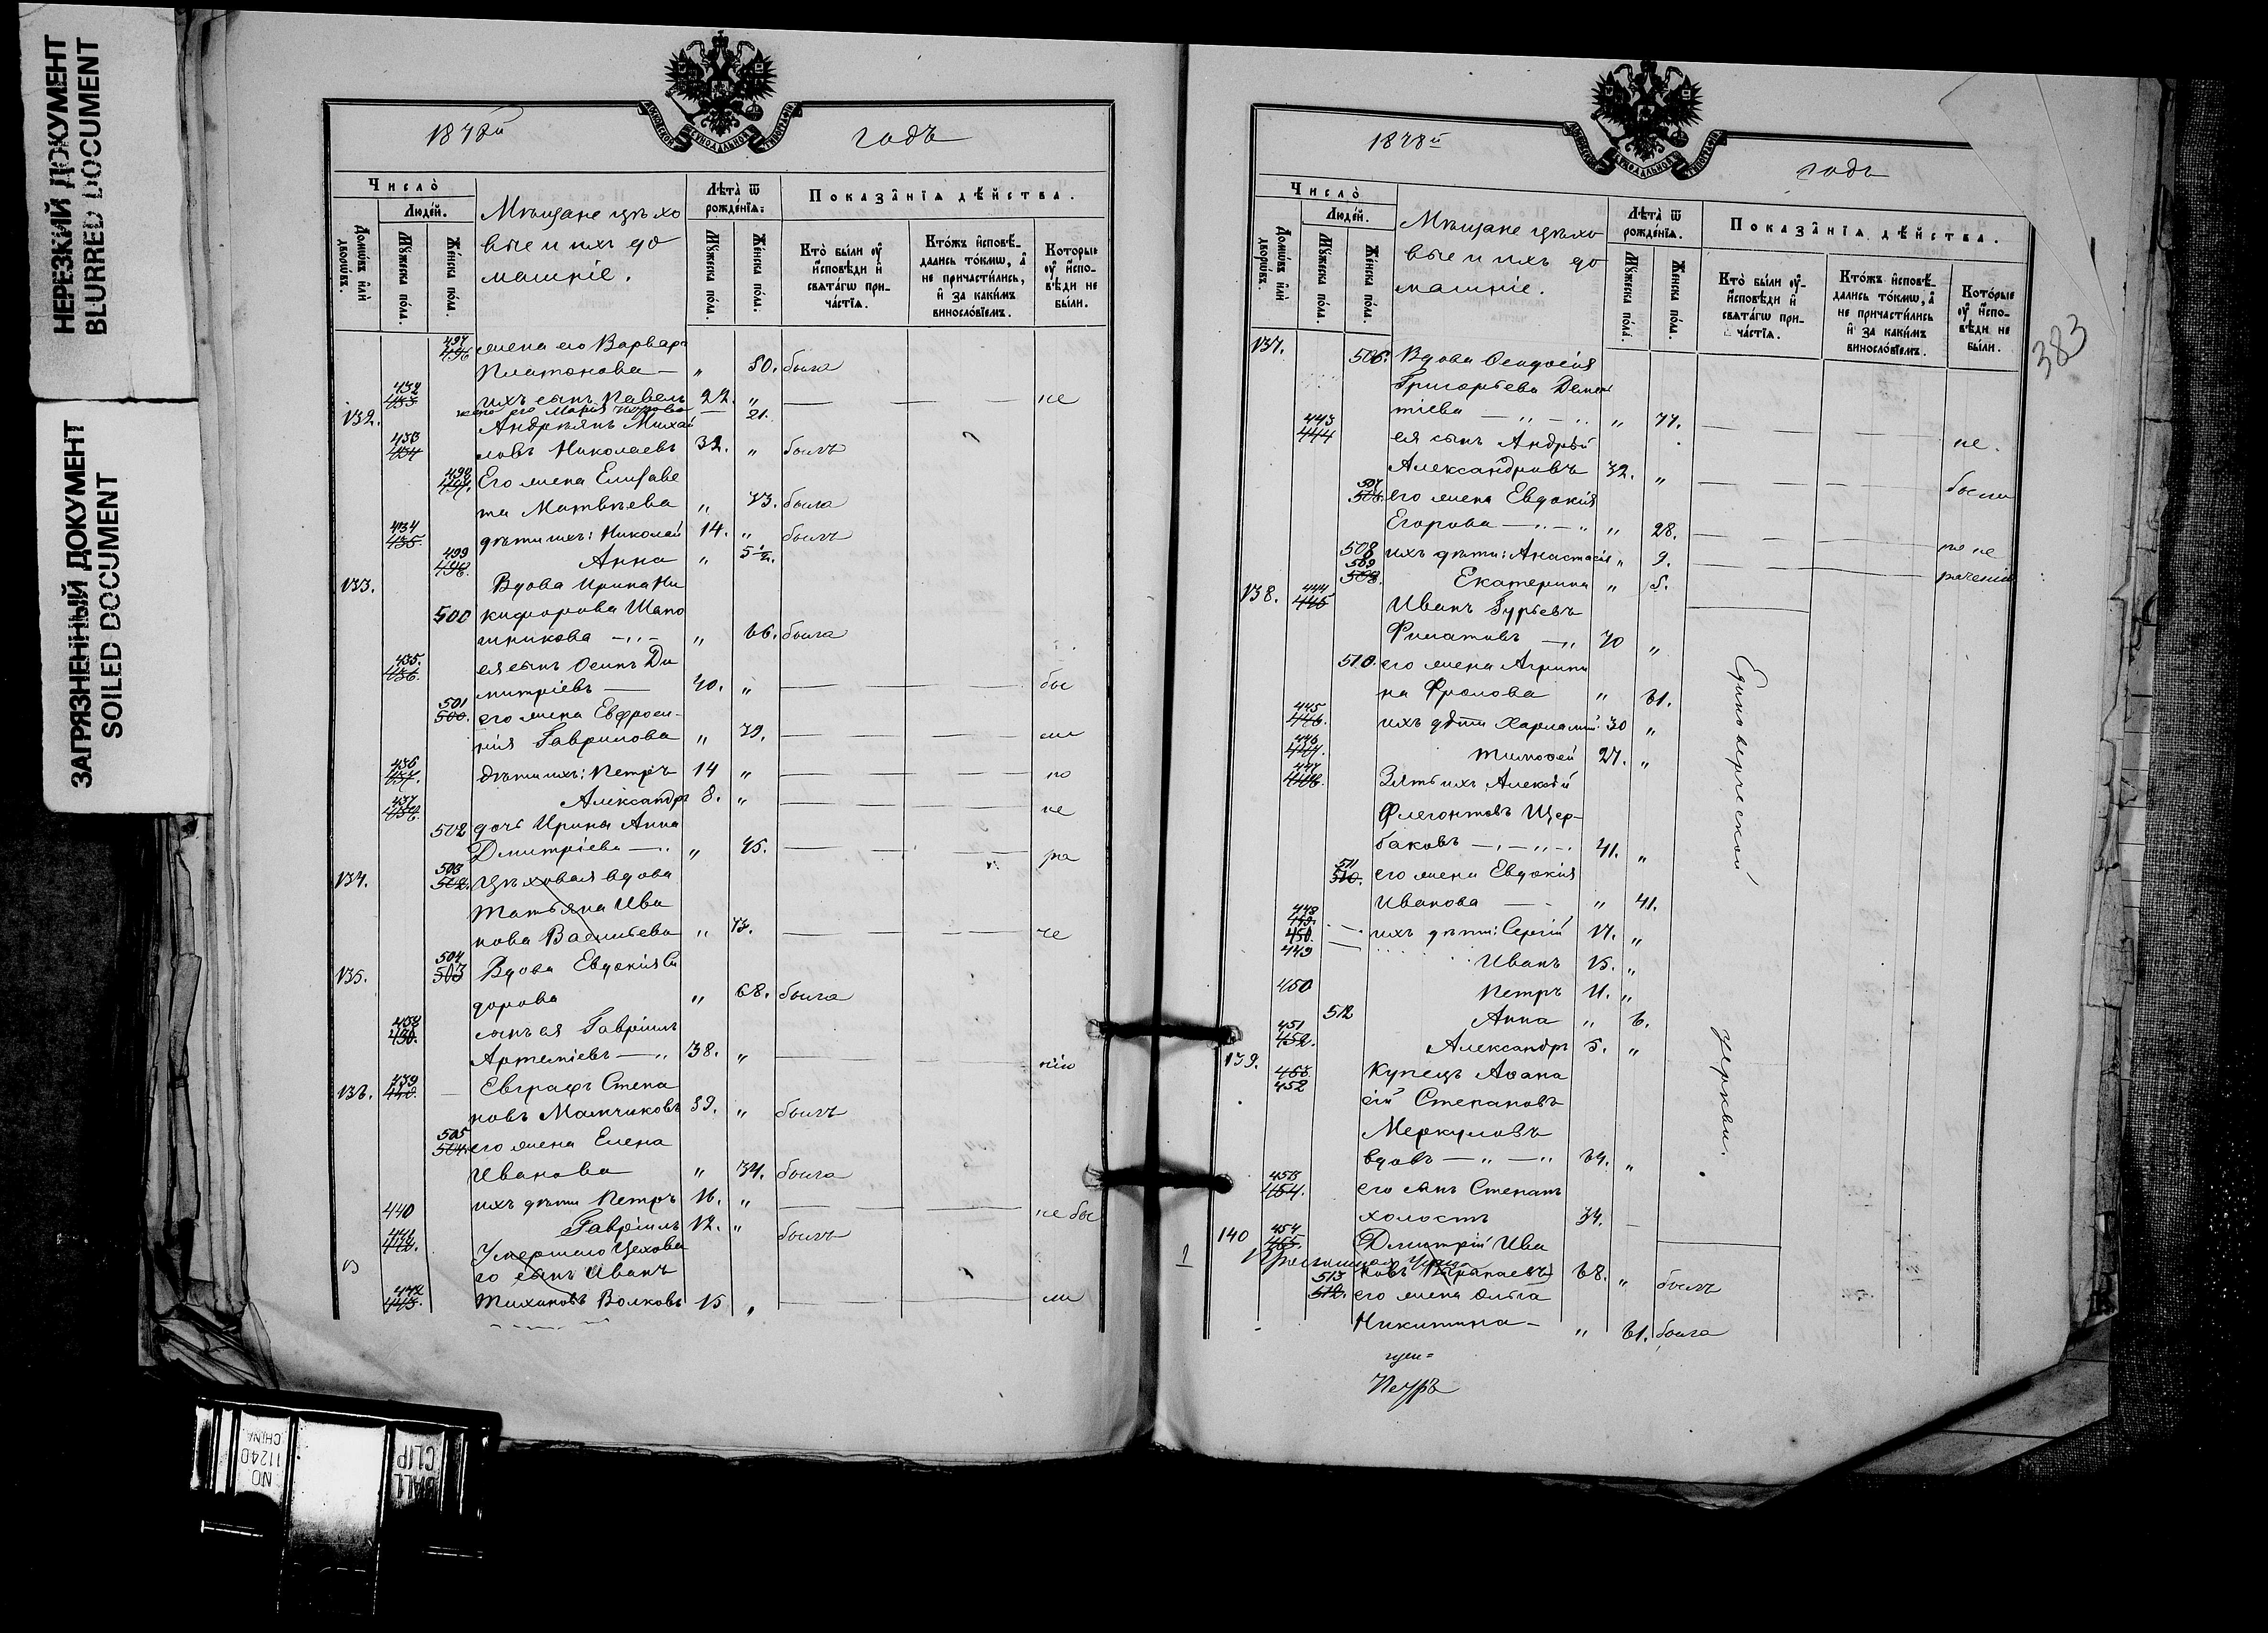 НЕРЕЗКИЙ ДОКУМЕНТ
BLURRED DOCUMENT
ЗАГРЯЗНЕННЫЙ ДОКУМЕНТ
SOILED DOCUMENT
МОСКОВСКОЙ СѴНОДАЛЬНОЙ ТИПОГРАФІИ
1878й годъ
Число̀
Домѡ́въ и҆лѝ дворѡ́въ.
Люде́й.
Мꙋ́жеска по́ла.
Же́нска по́ла.
Мѣщане цѣхо
вые и ихъ до
машніе.
Лѣта̀ ѿ рожде́нїѧ:
Мꙋ́жеска по́ла.
Же́нска по́ла.
Показа̑нїѧ дѣ́йства.
Кто̀ бы́ли ᲂу҆ и҆сповѣди и҆ свѧта́гѡ прича́стїѧ.
Кто́жъ и҆сповѣ́дались то́кмѡ, а҆ не причасти́лись, и҆ за каки́мъ винослов́їемъ.
Кото́рые ᲂу҆ и҆сповѣди не бы́ли.
497 496 жена его Варвара
Платонова — " 50. была
432 433 ихъ сынъ Павелъ 22. " — — — не
жена его Марія — 21.
132. Андреянъ Михай
433 434 ловъ Николаевъ 32. " былъ
498 497. Его жена Елизаве
та Матвѣева " 73. была
434 435. дѣти ихъ: Николай 14. " былъ
499 498. Анна " 5½.
133. Вдова Ирина Ни
500 кифорова Шапо
шникова —"— " 66. была
435. 436. ея сынъ Осипъ Ди
митріевъ — 40. " — — — бы
501 500. его жена Евфроси-
нія Гаврилова " 39. — — — ли
436 437. дѣти ихъ: Петръ 14 " — — — по
437 438. Александръ 8. " — — — не
502 дочь Ирины Анна
Дмитріева —" " 45. — — — ра
134. 503 502. Цѣховая вдова
Татьяна Ива
нова Васильева " 73. — — — че
135. 504 503 Вдова Евдокія Си
дорова " 68. была
438 439. сынъ ея Гавріилъ
Артеміевъ —" 38. " — — нію
136. 439 440. — Евграфъ Степа
новъ Мамчиковъ 39. " былъ
505 504. его жена Елена
Иванова " 34. была
440 ихъ дѣти Петръ 16. " — — — не бы
441 442. Гавріилъ 12. " былъ
Умершаго Цехова
го сынъ Иванъ
442 443. Тихановъ Волковъ 15 " — — — ли
1878й годъ
383
Число̀
Домѡ́въ и҆лѝ дворѡ́въ.
Люде́й.
Мꙋ́жеска по́ла.
Же́нска по́ла.
Мѣщане цѣхо
вые и ихъ до
машніе.
Лѣта̀ ѿ рожде́нїѧ.
Мꙋ́жеска по́ла.
Же́нска по́ла.
Показа̑нїѧ дѣ́йства.
Кто̀ бы́ли ᲂу҆ и҆сповѣди и҆ свѧта́гѡ прича́стїѧ.
Кто́жъ и҆сповѣ́дались то́кмѡ, а҆ не причасти́лись и҆ за каки́мъ винослов́їемъ.
Кото́рые ᲂу҆ и҆сповѣди не бы́ли.
137. 506. Вдова Ѳеодосія
Григорьева Демен
тіева —"— " 77. — — — не
443 444 ея сынъ Андрѣй
Александровъ 32. " — — — были
507 506. его жена Евдокія
Егорова —"— " 28. — — — по не
508 ихъ дѣти: Анастасія " 9. — — — раченію
509 508. Екатерина " 5.
138. 444 445 Иванъ Гурьевъ
Филатовъ —" 70 "
510. его жена Агрипи
на Фролова " 61.
445 446. ихъ дѣти Харлампій 30 "
446 447. Тимоѳей 27. "
447 448. Зять ихъ Алексѣй
Флегонтовъ Щер-
баковъ —"— 41. "
511 510. его жена Евдокія
Иванова — — " 41.
448 449. ихъ дѣти: Сергій 17. "
450. 449 Иванъ 15. "
450 Петръ 11. "
512 Анна " 6.
451 452. Александръ 5. "
Единоверческой церкви.
139. 453. 452 Купецъ Аѳана
сій Степановъ
Меркуловъ
вдовъ —"—" 64. "
453 454. его сынъ Степанъ
холостъ 34. —
140 454 455. Дмитрій Ива
новъ 68. " былъ
513 512. его жена Ольга
Никитина — " 61. была
Петръ
BALL CLIP
NO 11240
CHINA